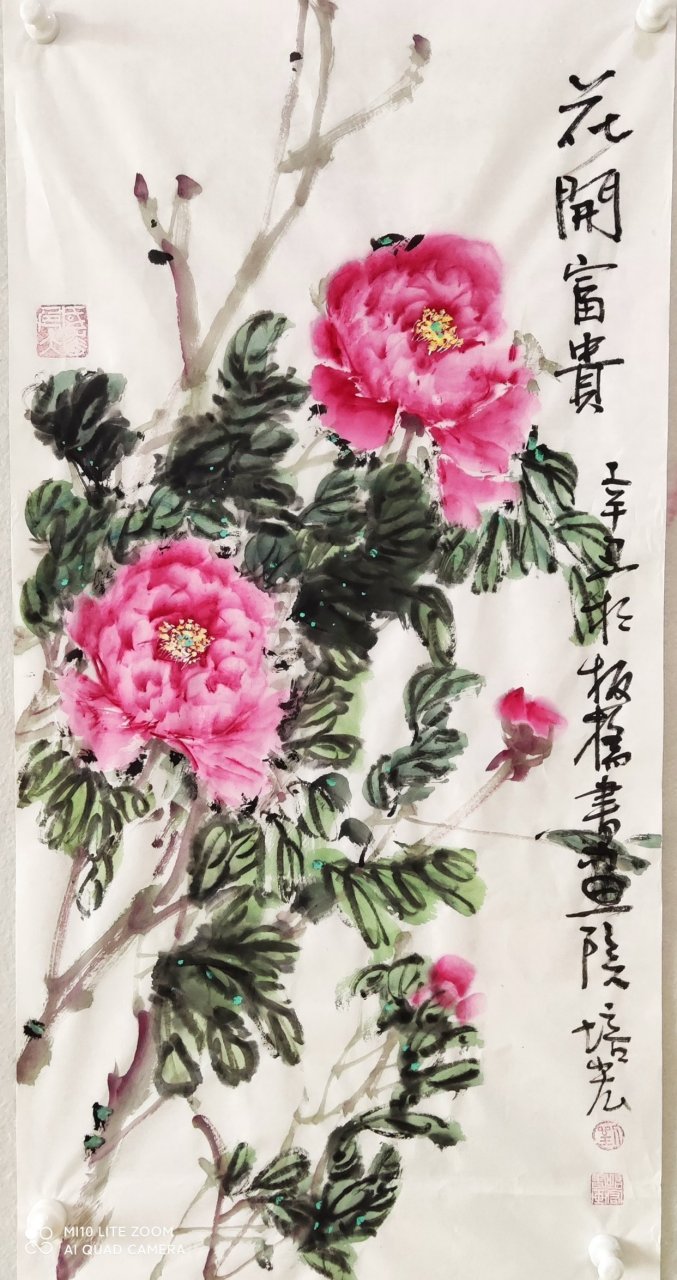 花開富貴
辛丑於板橋書畫院培宏
MI10 LITE ZOOM
AI QUAD CAMERA